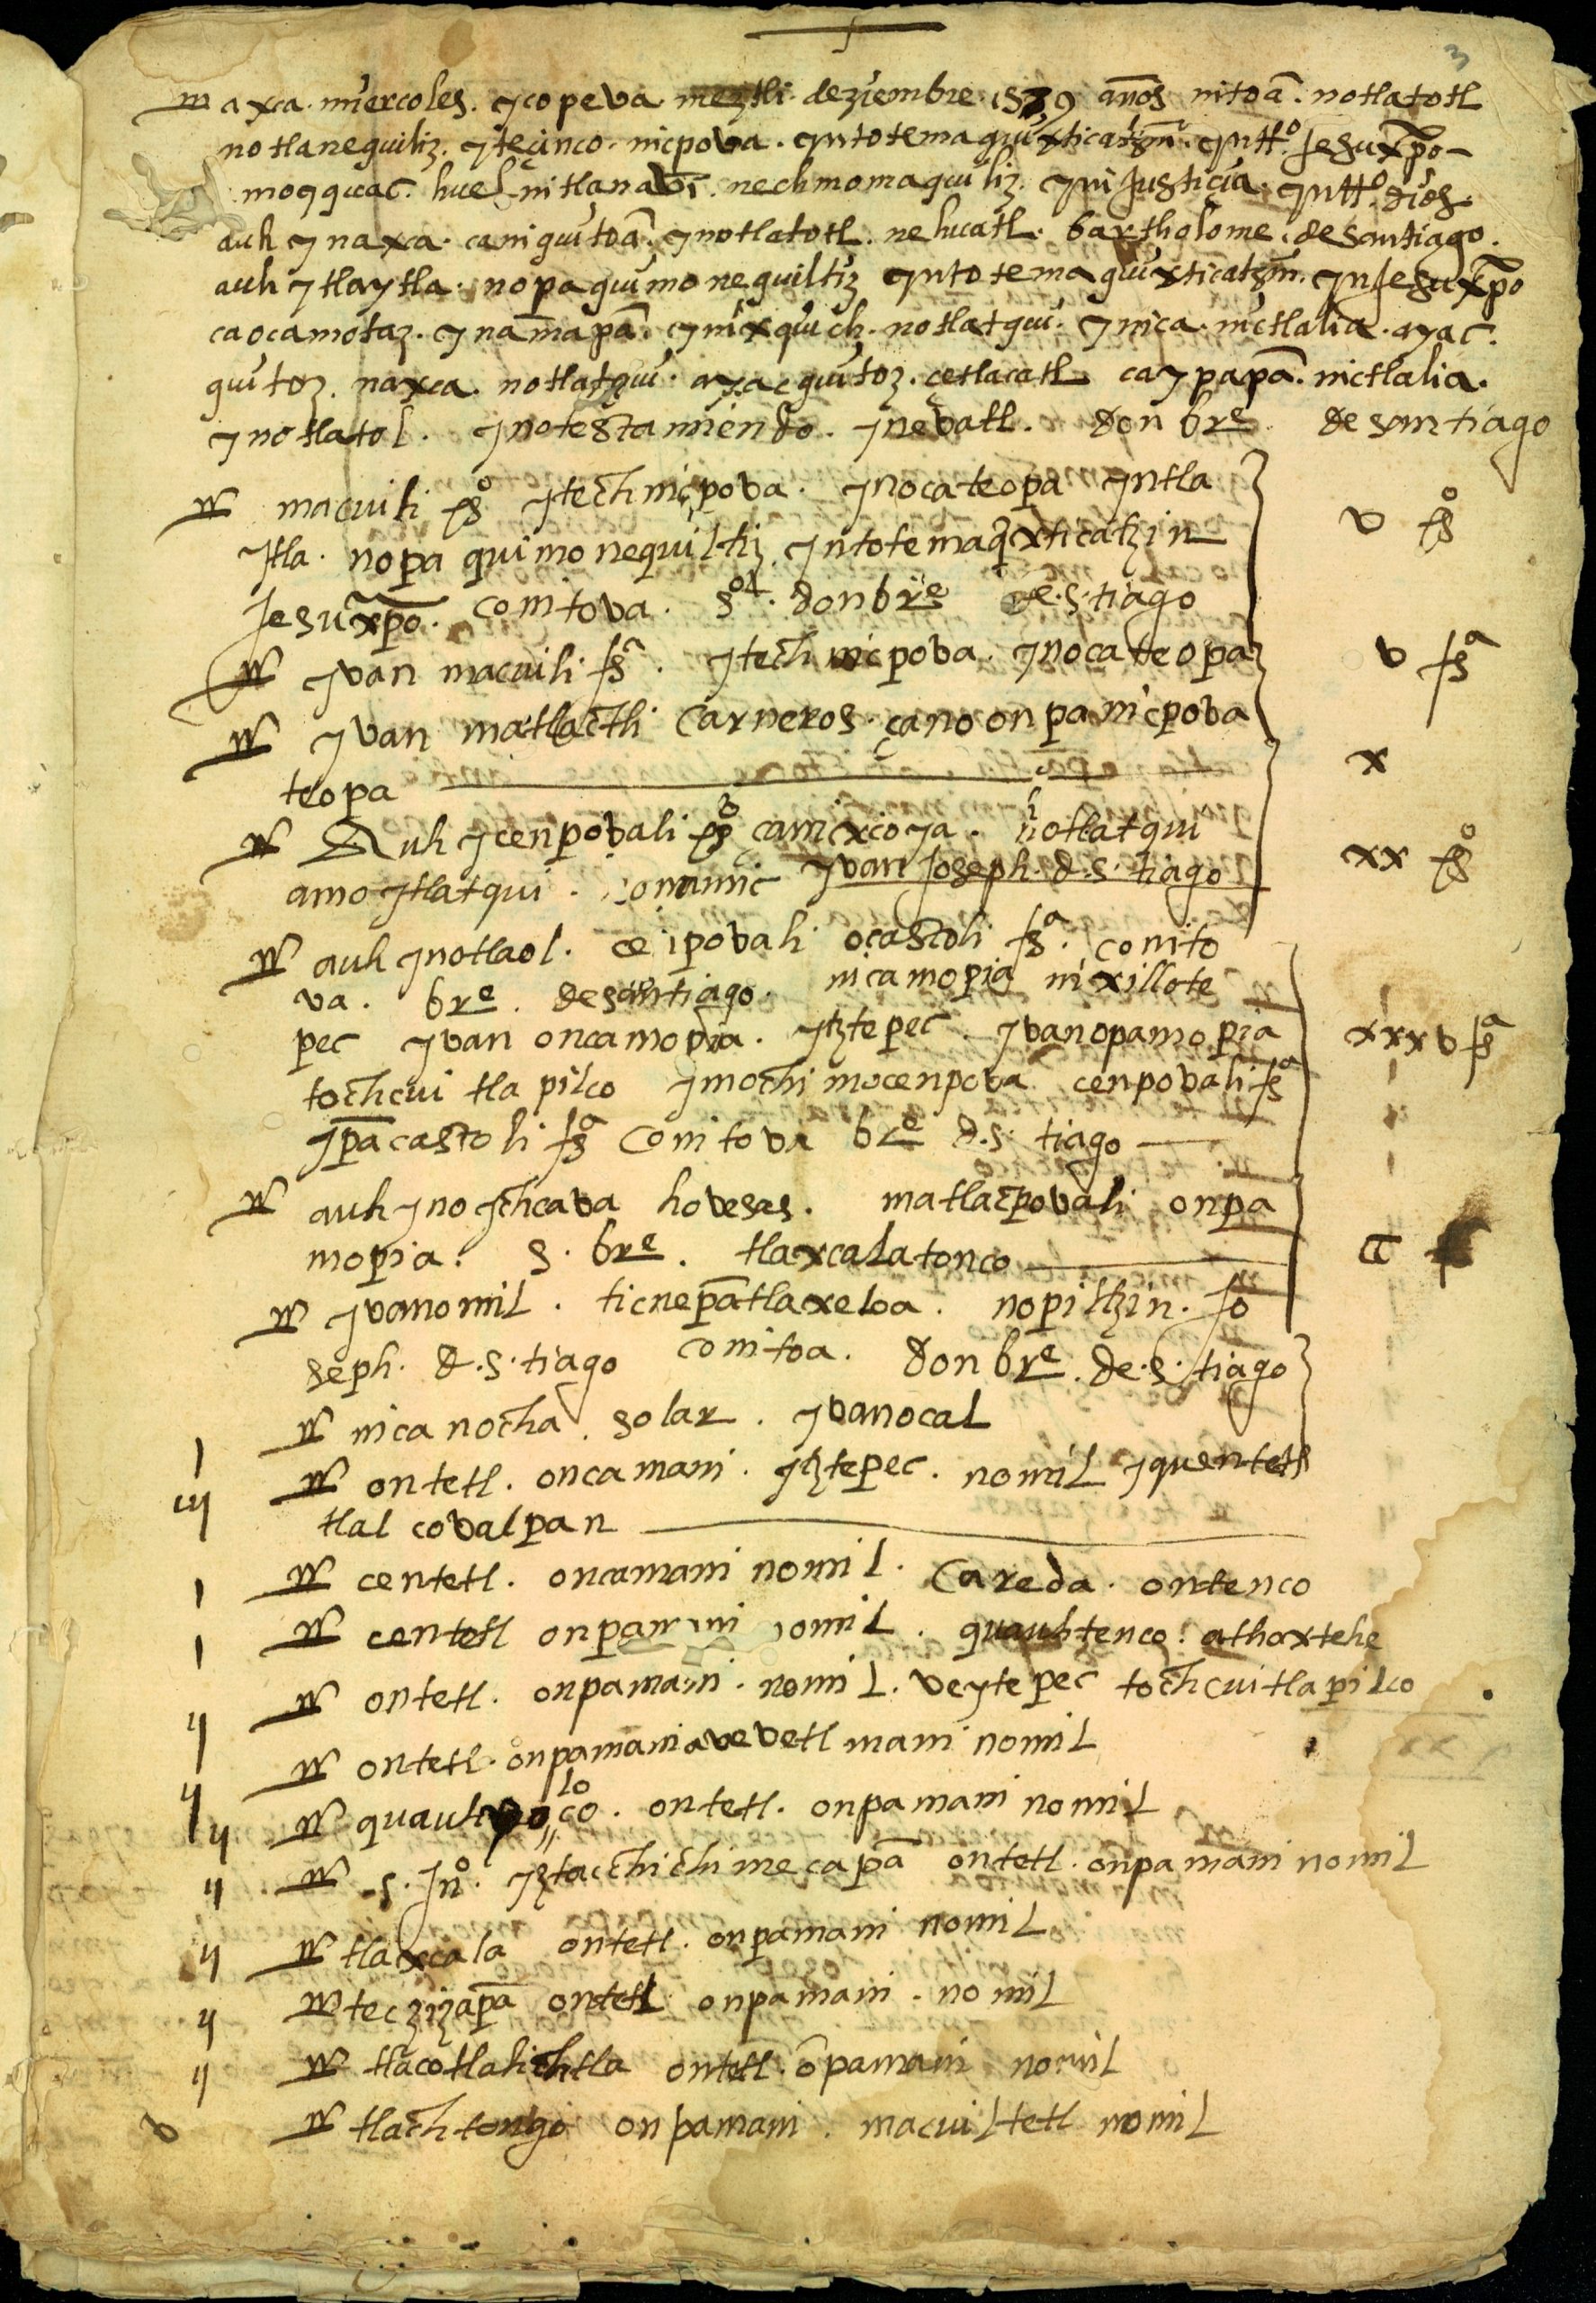 3
axca. miercoles. ycopeva meztli. deziembre. 1579 años nitoā. notlatotl
notlanequiliz. yteçinco. nicpova. yntotemaquixticatzin. yntto. Jesuxpo-
moqquac. huel nitlanavi. nechmomaquiliz. yni Justiçia. yntto. dios.
auh ynaxca. caniquitoā. ynotlatotl. nehucatl. bartholome. desantiago.
auh ytlaytla. nopaquimonequiltiz yntotemaquixticatzin. ynJesuxpo
caocamotaz. ynamapā. ynixquich. notlatqui. ynica. nictlalia. ayac.
quitoz. naxca. notlatqui. ayac quitoz. çetlacatl caypapā. nictlalia.
ynotlatol. ynotestamiendo. ynevatl. don bre de santiago
macuili po ytechnicpova. ynocateopa yntla v po
ytla. nopa quimonequiltiz yntotemaqixticatzin
Jesuxpo. conitova. sor. donbre de.s.tiago
yvan macuili fsa. ytech nicpova. ynocateopa v fsa
yvan matlactli carneros. çanoonpanicpova x
teopa
Auh ycenpovali po çanixcoya. notlatqui xx po
amo ytlatqui. yonamic yvan Joseph. d.s. tiago
auh ynotlaol. ceipovali ocastoli fsa. conito
va. bre. desantiago. nicamopia nixillote
pec yvan oncamopia. ytztepec. yvanopamopia xxxv fsa
tochcuitlapilco ymochi mocenpova cenpovali fsa
ypācastoli fsa conitova bre d.s. tiago
auh ynoychcava hovesas. matlacpovali onpa
mopia. s. bre. tlaxcalatonco cc
yvanomil. ticnepātlaxeloa. nopiltzin. Jo
seph. d.s.tiago conitoa. don bre. de.s.tiago
nica nocha solar. yvanocal
ontetl. oncamani. ytztepec. nomil yquentetl
tlal covalpan
centetl. oncamani nomil. Careda. ontenco
centetl onpamani nomil. quauhtenco. athoxtehe
ontetl. onpamani. nomil. veytepec tochcuitlapilco
ontetl. onpamaniavevetl mani nomil
ontetl. onpamani nomil
s. Jno. yztacchichimecapā ontetl. onpamani nomil
tlaxcala ontetl. onpamani nomil
teczizapā ontetl onpamani. nomil
tlacotlalichtla ontetl. ōpamani nomil
onpamani. macuiltetl nomil